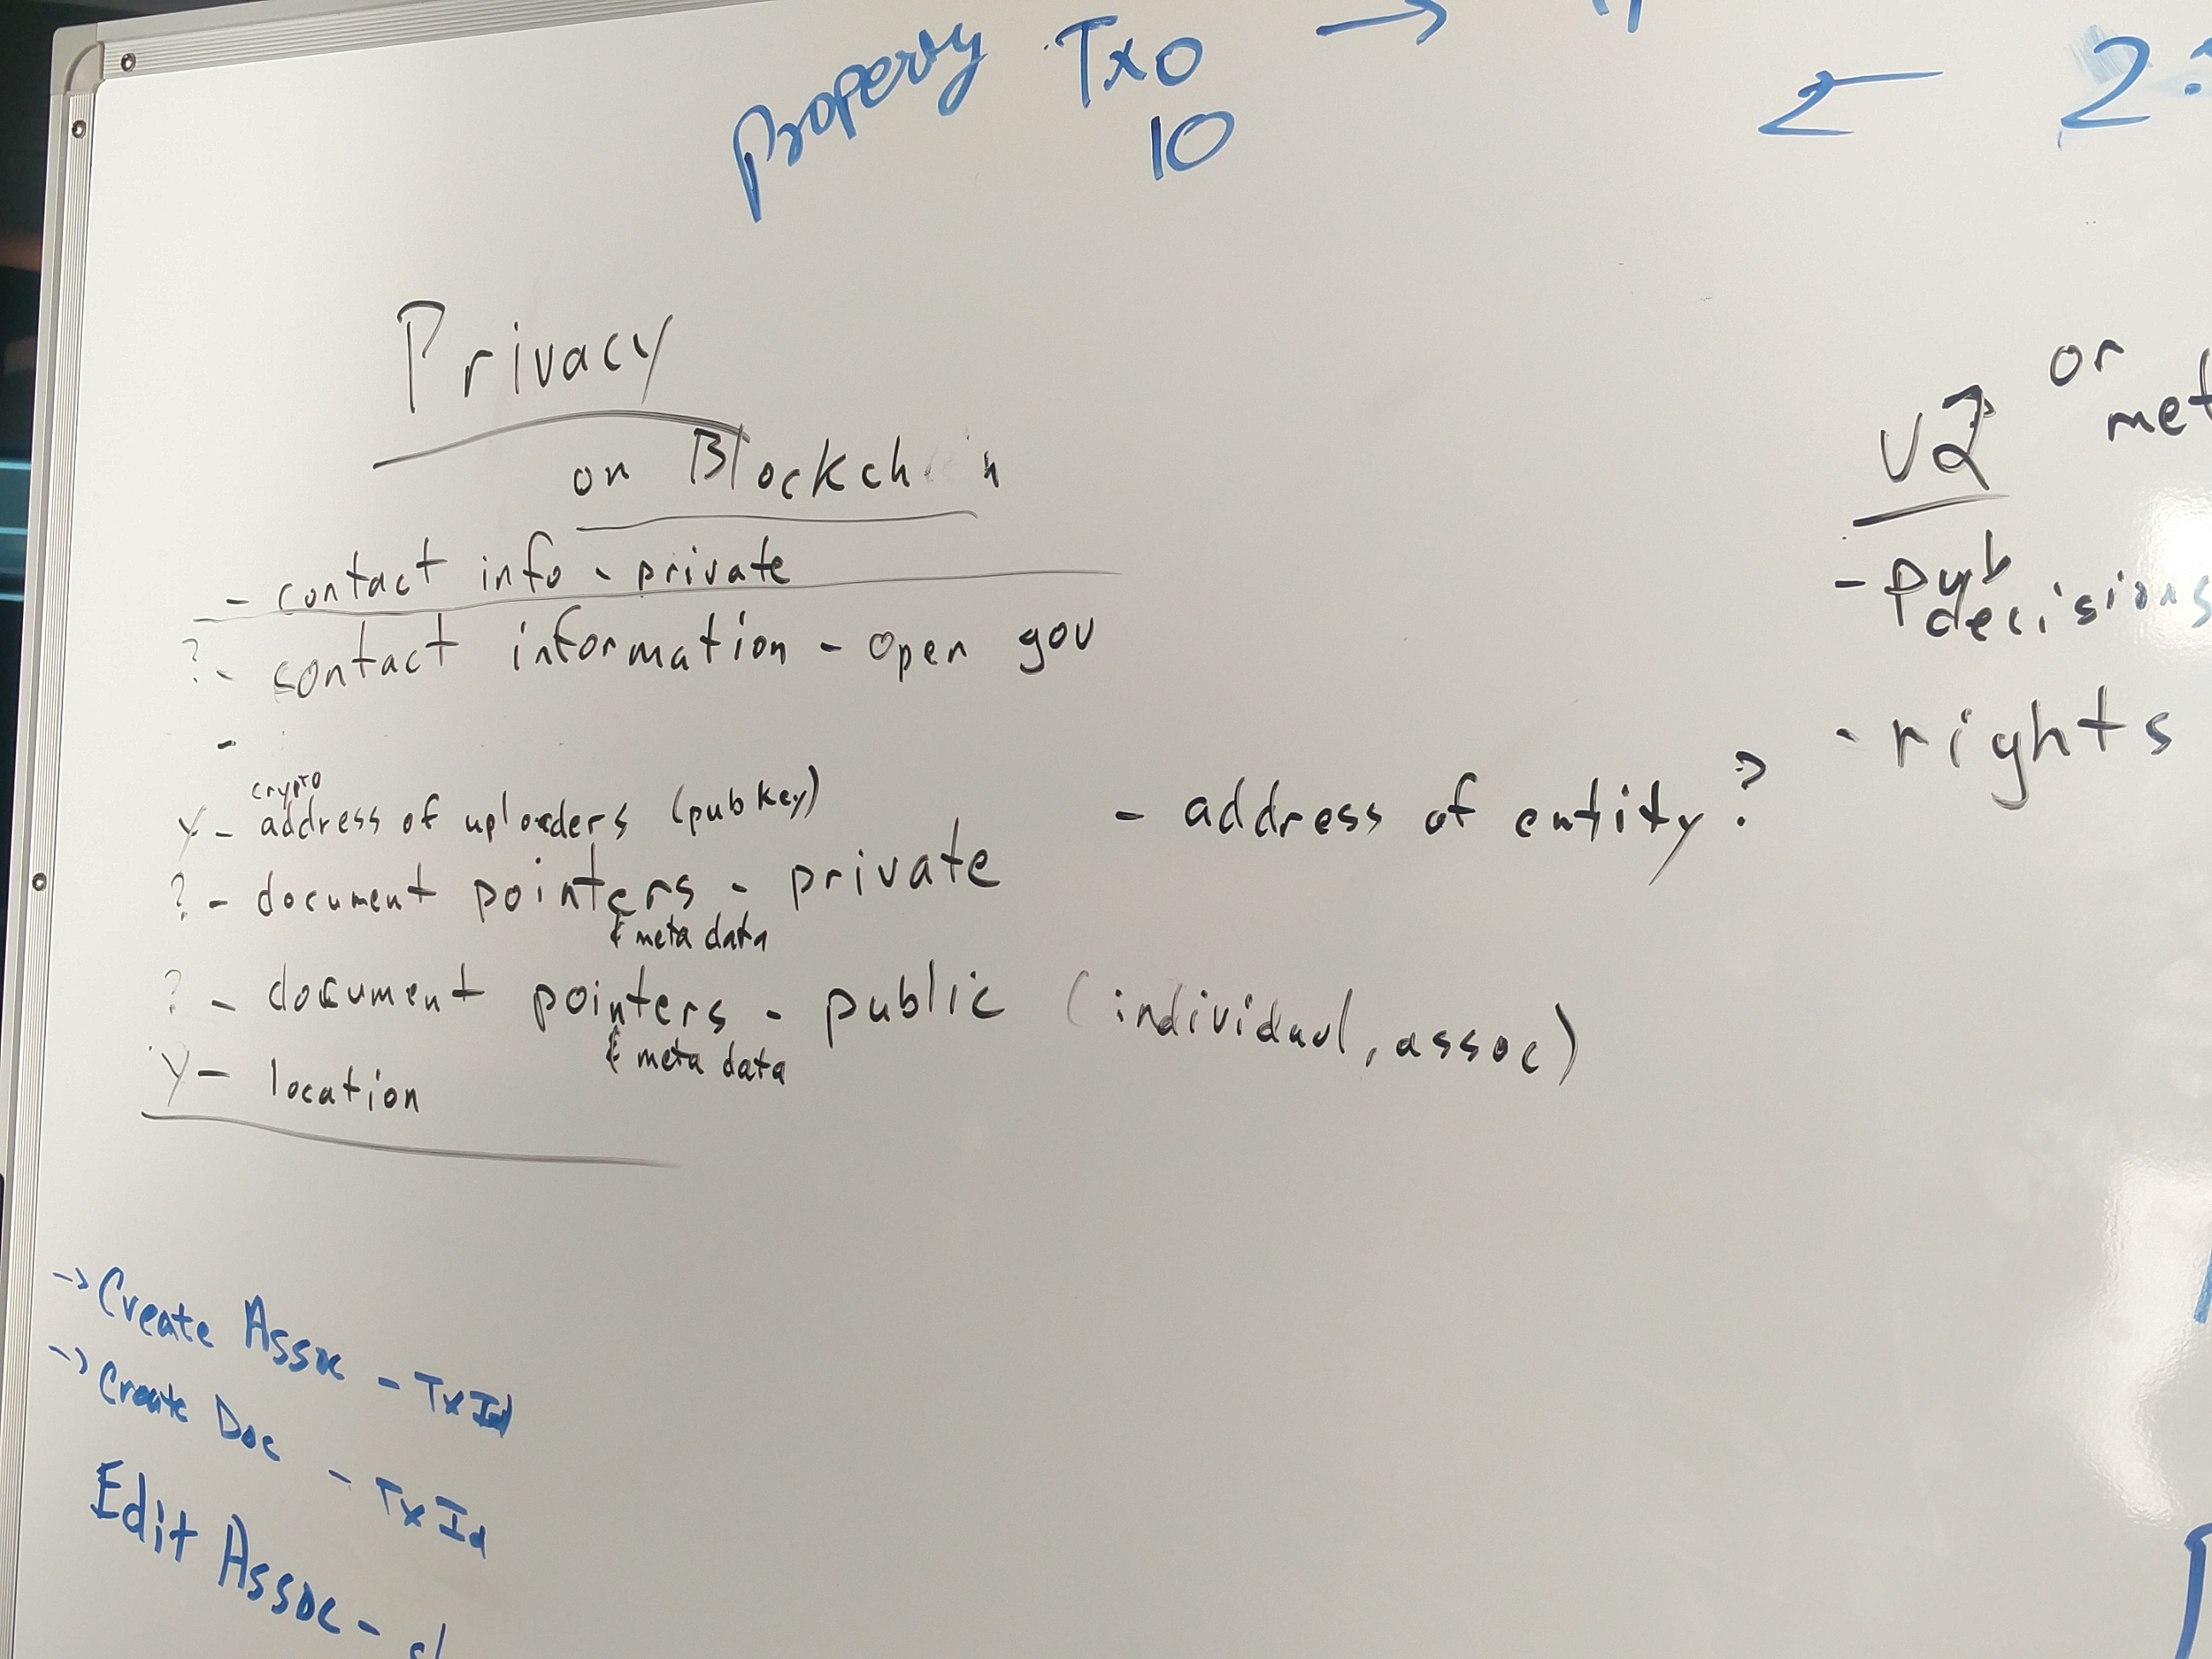 Property Tx0 →
10
← 2
Privacy
on Blockch n
- contact info - private
? - contact information - open gov
-
crypto
Y - address of uploaders (pub key)
- address of entity?
? - document pointers - private
& meta data
? - document pointers - public (individual, assoc)
& meta data
Y - location
or
met
V2
- pub
decisions
- rights
-> Create Assoc - TxId
-> Create Doc - TxId
Edit Assoc -